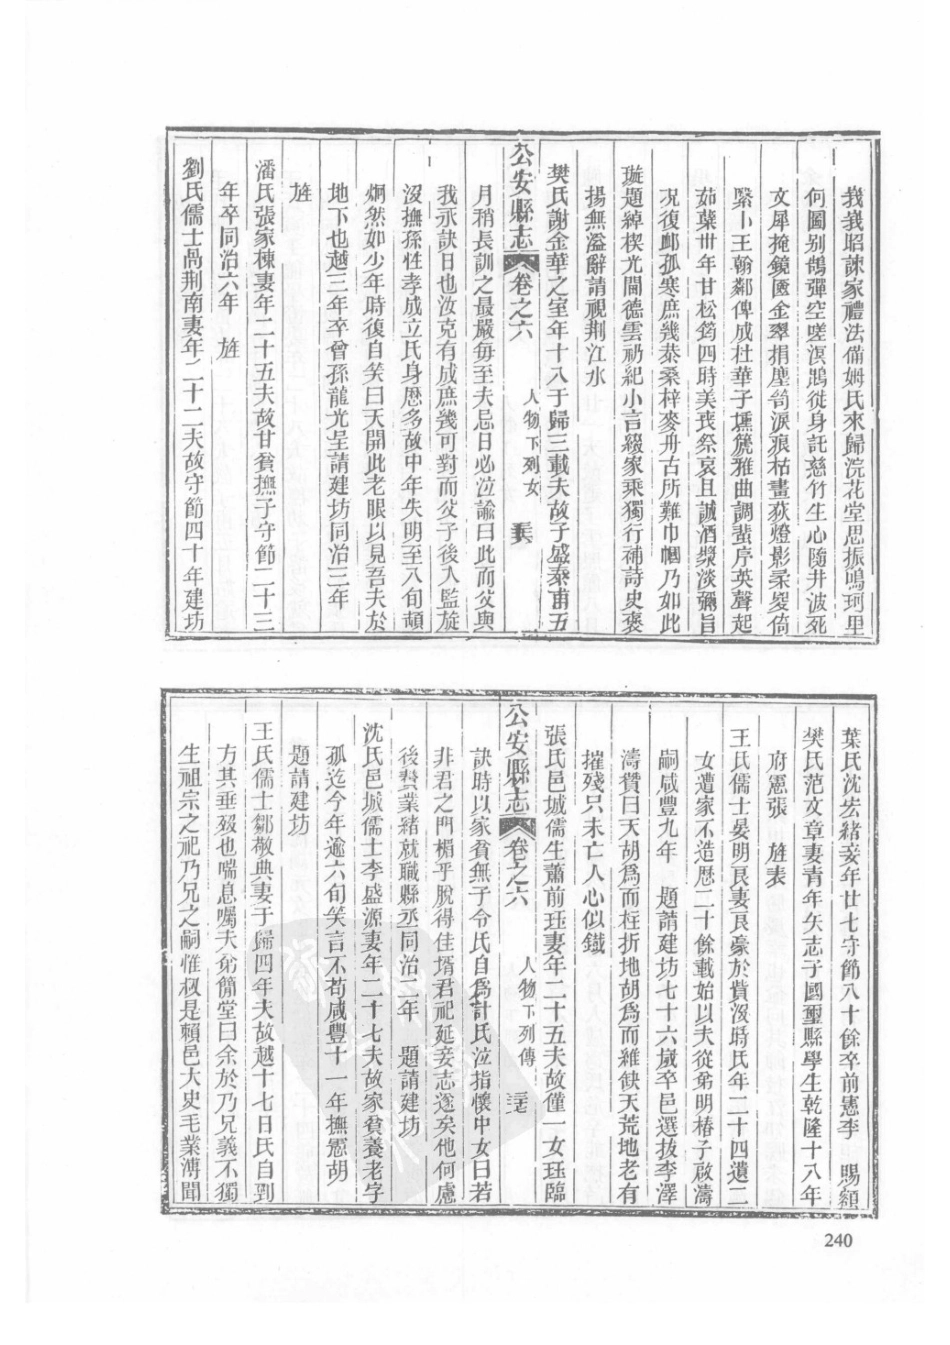 我我昭諫家禮法備姆氏來歸浣花堂思振鳴珂里
何圖别鵠彈空嗟溟鵾徙身託慈竹生心隨井波死
文犀掩鏡匳金翠捐塵笥淚痕枯畫荻燈影柔夋倚
緊小王翰鄰俾成杜華子壎箎雅曲調蜚序英聲起
茹蘗卅年甘松筠四時美喪祭哀且誠酒漿淡彌旨
況復䘏孤寒庶幾恭桑梓麥舟古所難巾幗乃如此
璇題綽楔光闡德雲礽紀小言綴家乘獨行補詩史褒
揚無溢辭請視荆江水
樊氏謝金華之室年十八于歸三載夫故子盛泰甫五
公安縣志 卷之六 人物下列女 三六
月稍長訓之最嚴每至夫忌日必泣諭曰此而父與
我永訣日也汝克有成庶幾可對而父子後入監旋
沒撫孫性孝成立氏身歷多故中年失明至八旬頓
炯然如少年時復自笑曰天開此老眼以見吾夫於
地下也越三年卒曾孫龍光呈請建坊同治三年
旌
潘氏張家棟妻年二十五夫故甘貧撫子守節二十三
年卒同治六年 旌
劉氏儒士咼荆南妻年二十二夫故守節四十年建坊
葉氏沈宏緒妾年廿七守節八十餘卒前憲李 賜額
樊氏范文章妻青年矢志子國璽縣學生乾隆十八年
府憲張 旌表
王氏儒士晏明艮妻艮豪於貲沒時氏年二十四遺二
女遭家不造歷二十餘載始以夫從弟明椿子啟濤
嗣咸豐九年 題請建坊七十六歲卒邑選抜李澤
濤贊曰天胡爲而柱折地胡爲而維缺天荒地老有
摧殘只未亡人心似鐵
張氏邑城儒生蕭前珏妻年二十五夫故僅一女珏臨
公安縣志 卷之六 人物下列傳 三七
訣時以家貧無子令氏自爲計氏泣指懷中女曰若
非君之門楣乎脫得佳壻君祀延妾志遂矣他何慮
後贅業緒就職縣丞同治二年 題請建坊
沈氏邑城儒士李盛源妻年二十七夫故家貧養老字
孤迄今年逾六旬笑言不苟咸豐十一年撫憲胡
題請建坊
王氏儒士鄒敬典妻于歸四年夫故越十七日氏自刭
方其垂殁也喘息囑夫弟簡堂曰余於乃兄義不獨
生祖宗之祀乃兄之嗣惟叔是賴邑大史毛業溥聞
240